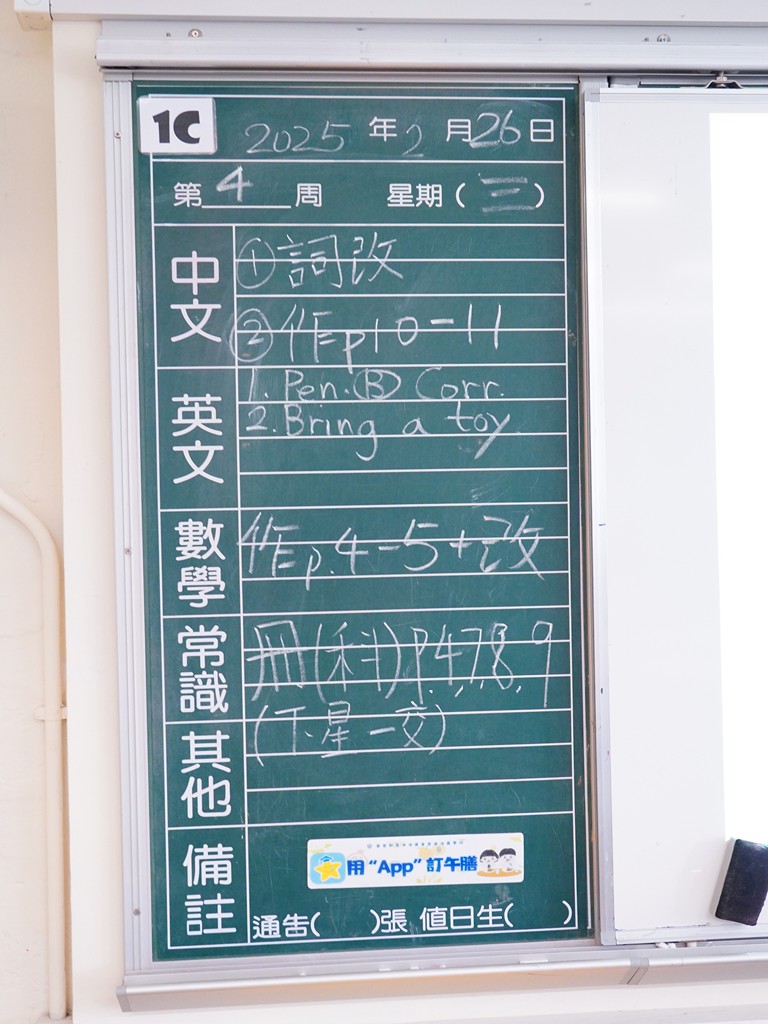 1C
2025 年 2 月 26 日
第 4 周 星期（三）
中文
① 詞改
② 作p10-11
英文
1. Pen. Ⓑ Corr.
2. Bring a toy
數學
作p.4-5+改
常識
冊(科)P.4,7,8,9
其他
(下星一交)
備註
用“App”訂午膳
通告( )張 值日生( )